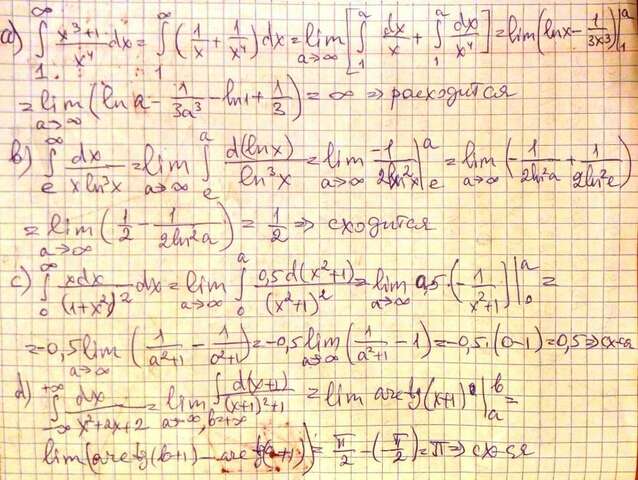 a) ∫₁^∞ (x³+1)/x⁴ dx = ∫₁^∞ (1/x + 1/x⁴) dx = lim_{a→∞} [∫₁^a dx/x + ∫₁^a dx/x⁴] = lim (ln x − 1/(3x³))|₁^a
= lim_{a→∞} (ln a − 1/(3a³) − ln 1 + 1/3) = ∞ ⇒ расходится
b) ∫_e^∞ dx/(x ln³x) = lim_{a→∞} ∫_e^a d(ln x)/(ln³x) = lim_{a→∞} −1/(2ln²x)|_e^a = lim_{a→∞} (−1/(2ln²a) + 1/(2ln²e))
= lim_{a→∞} (1/2 − 1/(2ln²a)) = 1/2 ⇒ сходится
c) ∫₀^∞ xdx/(1+x²)² dx = lim_{a→∞} ∫₀^a 0,5d(x²+1)/(x²+1)² = lim_{a→∞} 0,5·(−1/(x²+1)]|₀^a =
= −0,5 lim_{a→∞} (1/(a²+1) − 1/(0²+1)) = −0,5 lim_{a→∞} (1/(a²+1) − 1) = −0,5·(0−1) = 0,5 ⇒ сх-ся
d) ∫_{−∞}^{+∞} dx/(x²+2x+2) = lim_{a→−∞, b→+∞} ∫ d(x+1)/((x+1)²+1) = lim arctg(x+1)|_a^b =
lim(arctg(b+1) − arctg(a+1)) = π/2 − (−π/2) = π ⇒ сх-ся